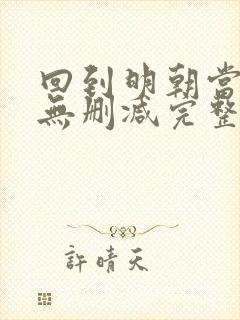 回到明朝當
無刪减完整
許晴天